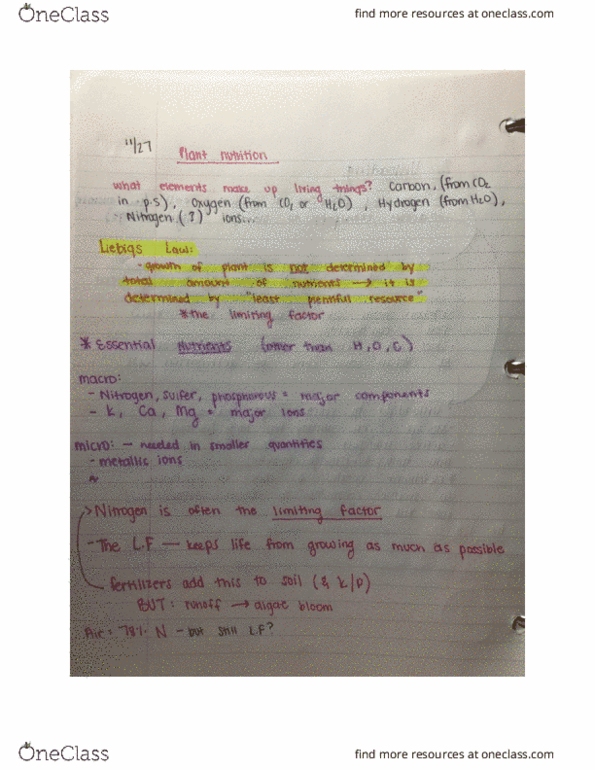 OneClass
find more resources at oneclass.com
11/27
Plant nutrition
what elements make up living things? Carbon, (from CO2
in p.s), Oxygen (from CO2 or H2O), Hydrogen (from H2O),
Nitrogen (?) ions...
Liebigs Law:
- growth of plant is not determined by
total amount of nutrients → it is
determined by "least plentiful resource"
*the limiting factor
* Essential Nutrients (other than H, O, C)
macro:
- Nitrogen, sulfer, phosphorous = major components
- K, Ca, Mg = major ions
micro: - needed in smaller quantities
- metallic ions
> Nitrogen is often the limiting factor
- The L.F — keeps life from growing as much as possible
fertilizers add this to soil (& K/P)
BUT: runoff → algae bloom
Air: 78% N - but still L.F?
OneClass
find more resources at oneclass.com